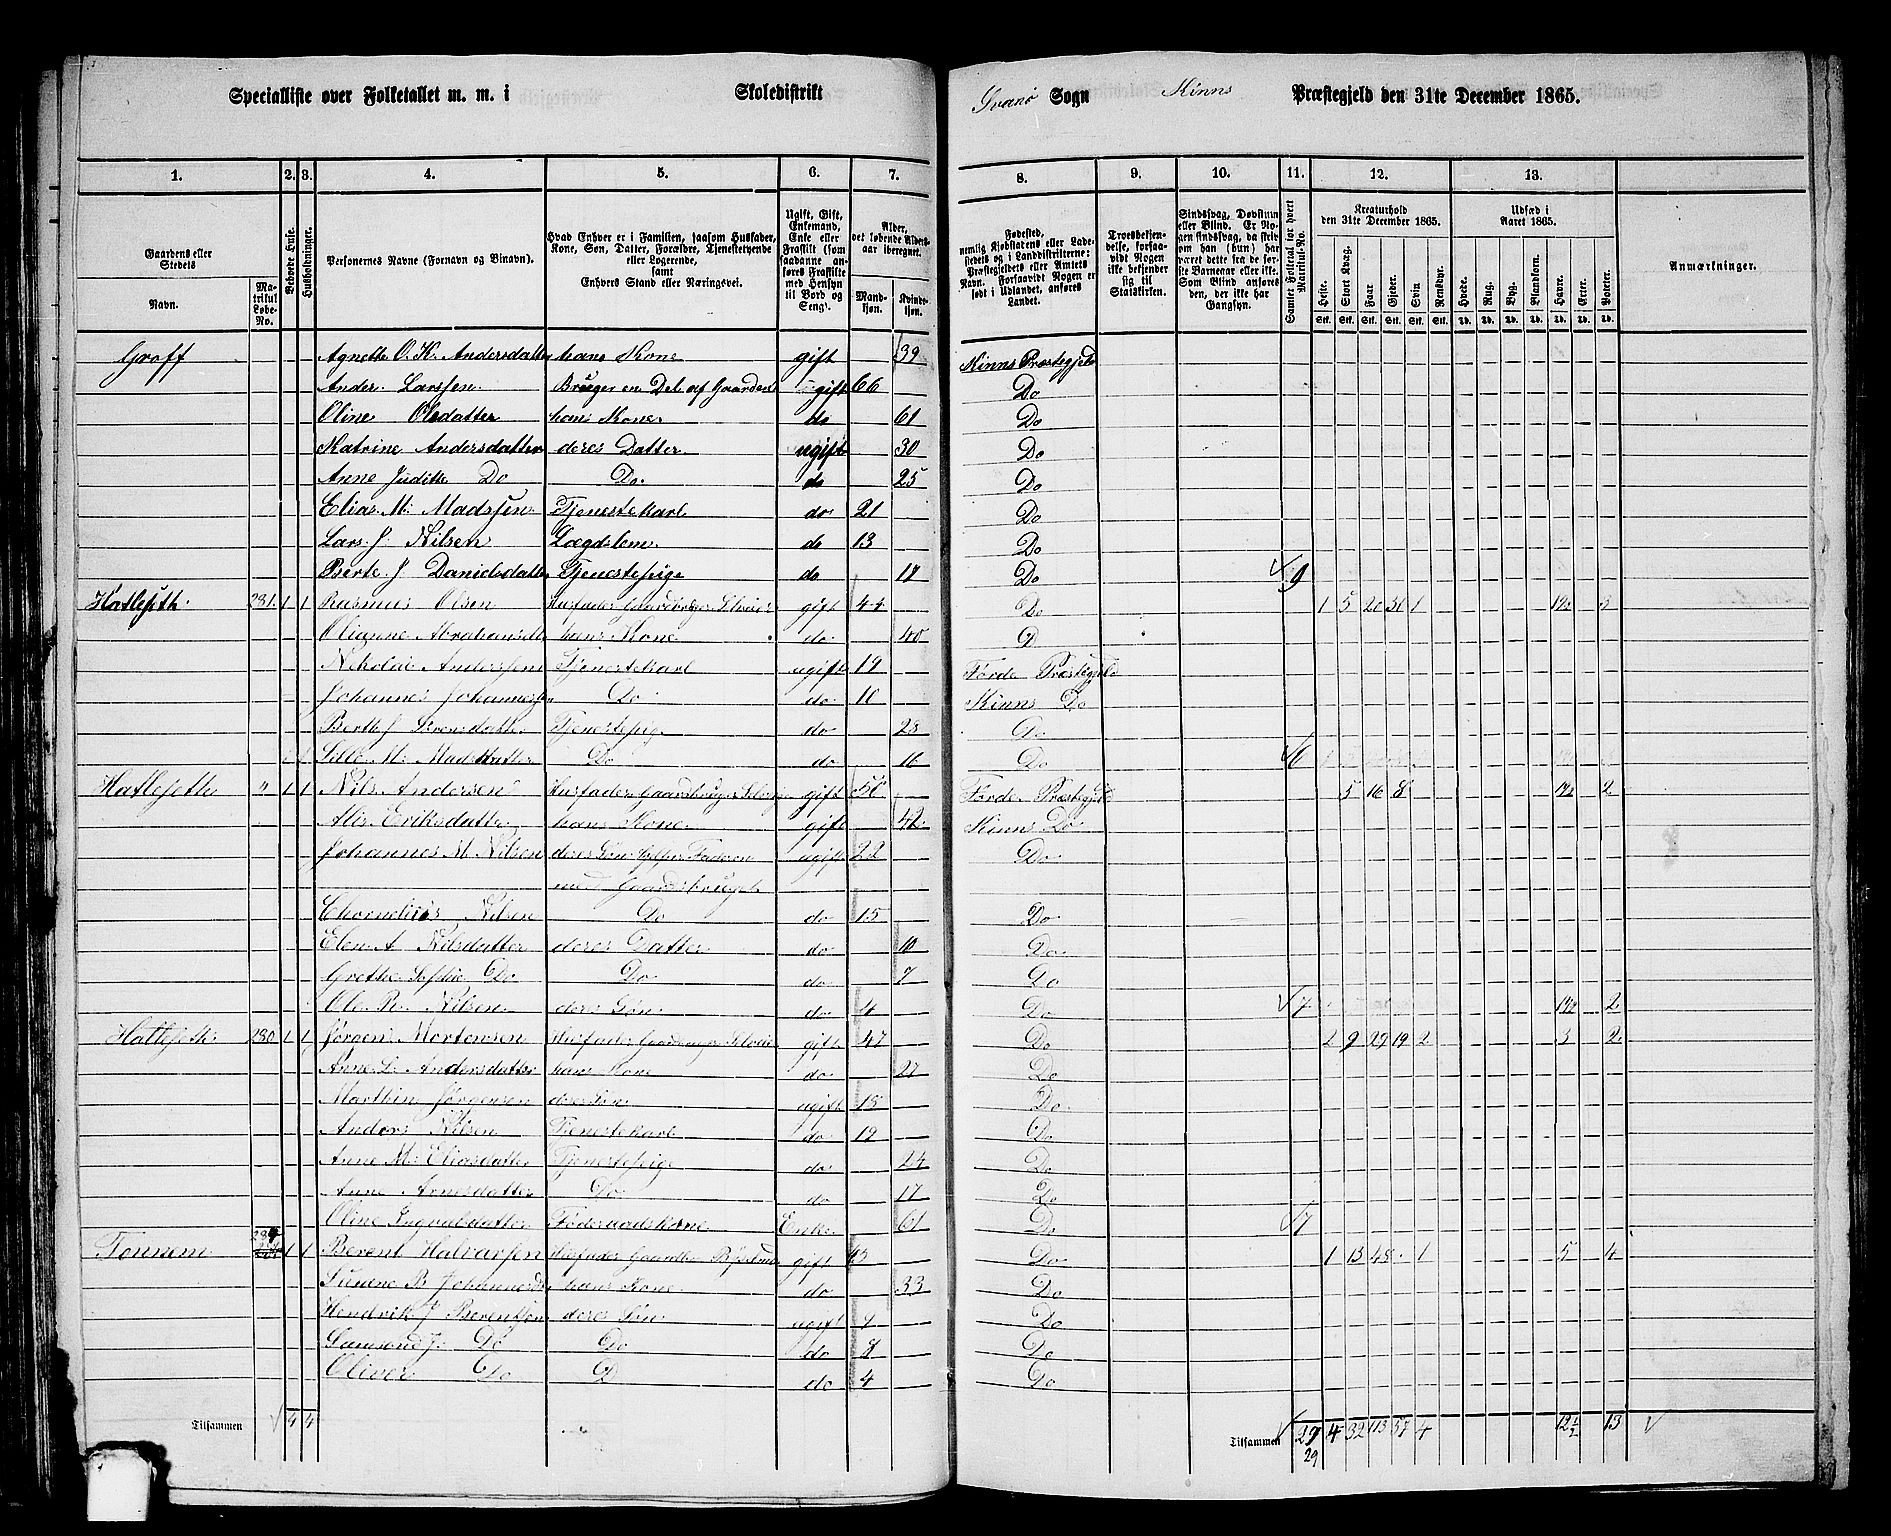 Specialliste over Folketallet m. m. i Skoledistrikt Svanø Sogn Kinns Præstegjeld den 31te December 1865.
1. 2. 3. 4. 5. 6. 7. 8. 9. 10. 11. 12. 13.
Gaardens eller Stedets
Navn.
Matrikul Løbe-No.
Beboede Huse.
Husholdninger.
Personernes Navne (Fornavn og Binavn).
Hvad Enhver er i Familien, saasom Husfader, Kone, Søn, Datter, Forældre, Tjenestetyende eller Logerende,
samt
Enhvers Stand eller Næringsvei.
Ugift, Gift, Enkemand, Enke eller Fraskilt (som saadanne anføres Fraskilte med Hensyn til Bord og Seng).
Alder, det løbende Aldersaar iberegnet.
Mandkjøn. Kvindekjøn.
Fødested, nemlig Kjøbstadens eller Ladestedets og i Landdistrikterne: Præstegjeldets eller Amtets Navn. Forsaavidt Nogen er født i Udlandet, anføres Landet.
Troesbekjendelse, forsaavidt Nogen ikke bekjender sig til Statskirken.
Sindssvag, Døvstum eller Blind. Er Nogen sindssvag, da skriv om han (hun) har været dette fra de første Barneaar eller ikke. Som Blind anføres den, der ikke har Gangsyn.
Samlet Folketal for hvert Matrikul-No.
Kreaturhold den 31te December 1865.
Heste. Stort Kvæg. Faar Gjeder. Svin Rensdyr.
Udsæd i Aaret 1865.
Hvede. Rug. Byg. Blandkorn. Havre. Erter. Poteter.
Anmærkninger.
Groff Agnette O. K. Andersdatter hans Kone gift 39 Kinns Præstegjeld
Anders Larssen Bruger en Del af Gaarden gift 66 Do
Oline Olsdatter hans Kone do 61 Do
Katrine Andersdatter deres Datter ugift 30 Do
Anne Judithe Do Do do 25 Do
Elias M. Madssen Tjenestekarl do 21 Do
Lars J. Nilsen Lægdslem do 13 Do
Berte J Danielsdatter Tjenestepige do Do 9
Hatlesæth 281 1 1 Rasmus Olsen Husfader Gaardbruger Selveier gift 44 Do 1 5 20
Olianne hans Kone do 40 D
Nikolai Anderssen Tjenestekarl ugift 19 Førde Præstegjeld
Johannes Johannessen Do do Kinns Do
Berthe J Tjenestepige do 28 Do
M. Madsdatter Do do 16 Do 6
Hatlesæth " 1 1 Nils Andersen Husfader Gaardbruger Selveier gift 56 Førde Præstegjeld 5 16 8 2
Eriksdatter hans Kone gift 42 Kinns Do
Johannes M. Nilsen deres Søn hjelper Faderen ugift 22 Do
med Gaardsbruget
Nilsen Do do 15 Do
Elen A Nilsdatter deres Datter do 10 Do
Grethe Sophie Do Do do 7 Do
Ole R. Nilsen deres Søn do 4 Do 7 2
Hatlesæth 280 1 1 Jørgen Mortensen Husfader Gaardbruger Selveier gift 47 Do 2 9 29 19 2 3 2
Anne L. Andersdatter hans Kone do 27 Do
Marthin Jørgensen deres Søn ugift 15 Do
Anders Nilsen Tjenestekarl do 19 Do
Anne M. Eliasdatter Tjenestepige do 24 Do
Anne Arnesdatter Do do 17 Do
Oline Ingvalsdatter Føderaadskone Enke 61 Do 7
Tonnem 1 1 Berent Halvarsen Husfader gift 43 Do 1 13 48 1 5 4
B Johannesd hans Kone do 33 Do
Hendrik J Berentsen deres Søn ugift 9 Do
J. Do Do do 8 Do
Oliver Do D do 4 Do
Tilsammen 4 4 Tilsammen 29 4 32 113 57 4 12 1/2 13
29